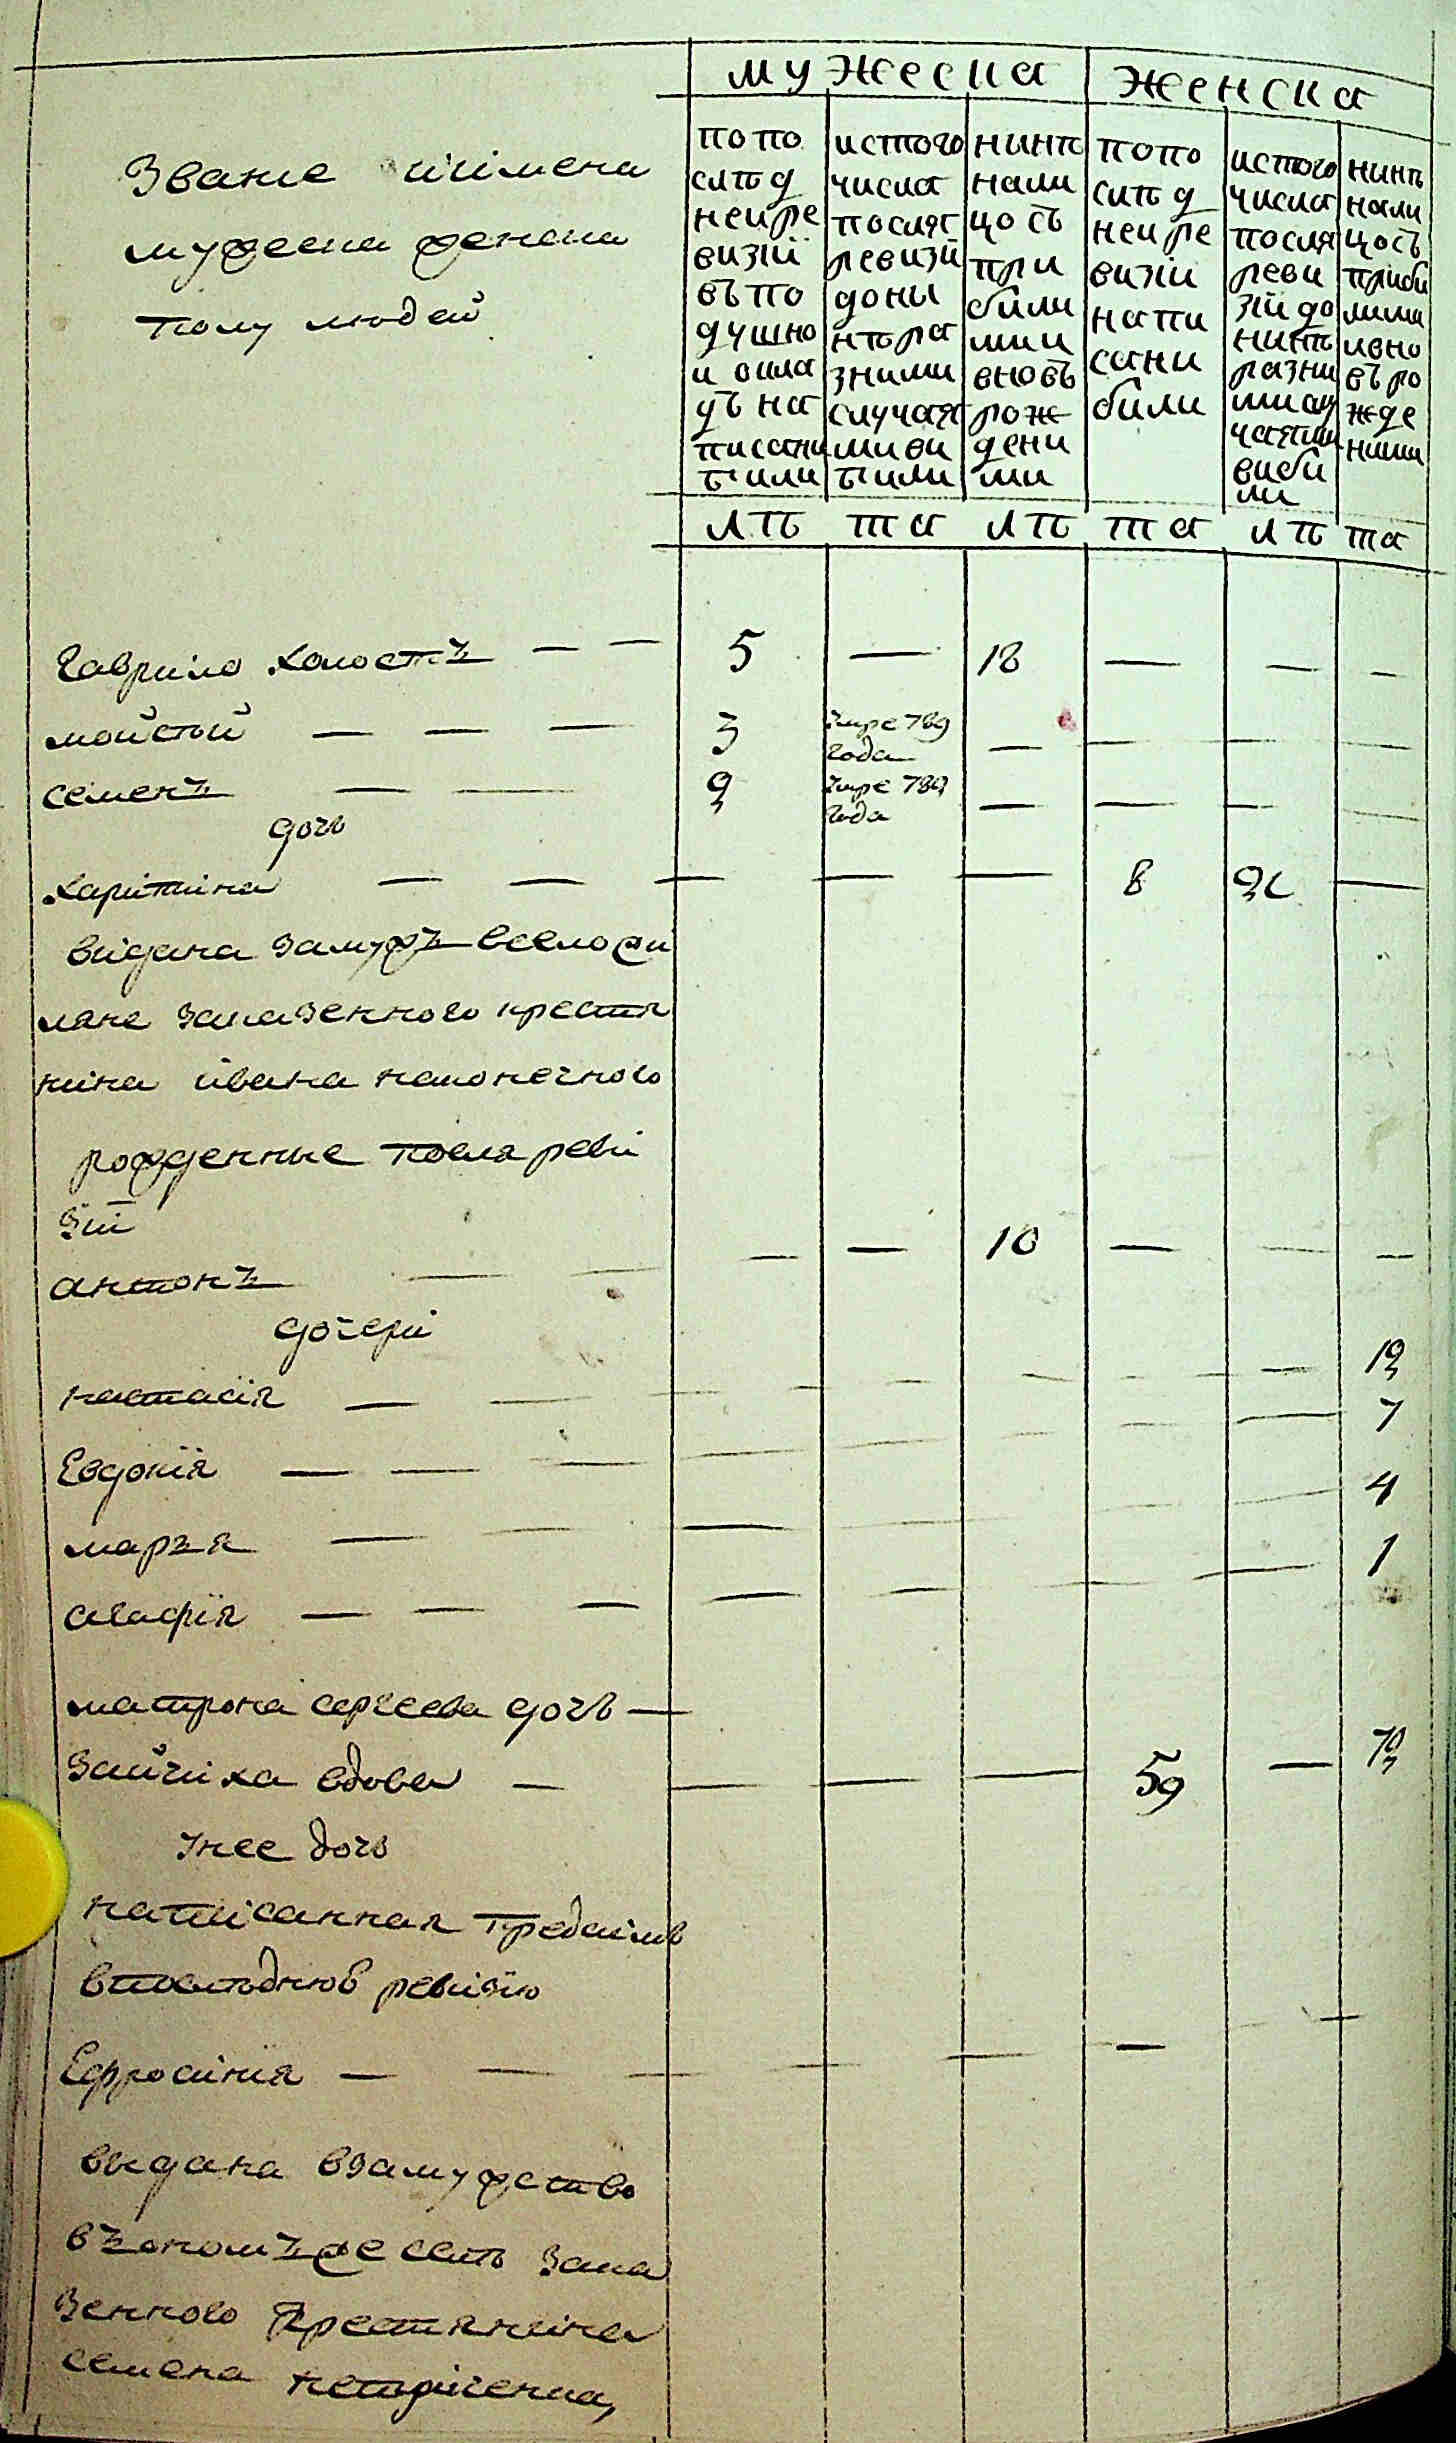 мужеска женска
Звание иимена
мужеска женска
полу людей
попо
слѣд
неире
визiи
въпо
душно
и окла
дъ на
писани
били
истого
числа
посля
ревизiи
доны
нѣра
зними
случая
миви
били
нинѣ
нали
цось
при
били
ми и
вновъ
рож
дени
ми
попо
слѣд
неи ре
визiи
напи
сани
били
истого
числа
посля
реви
зiи до
нинѣ
разни
ми слу
чаями
виби
ли
нинѣ
нали
цось
приби
лими
ивно
въ ро
жде
ними
лѣ та лѣ та лѣ та
Гаврило холостъ — — 5 — 18 — — —
мойсей — — — 3 умре 789 года — — — —
семенъ — — 9 умре 789 года — — — —
дочь
харитина — — — — — 8 —
видана замужъ всело
ляне заказенного крестя
нина ивана
рожденные посля реви
зiи
антонъ — — — — 10 — — —
дочери
настасiя — — — — — — — — 12
Евдокiя — — — — — — — — 7
марья — — — — — — — 4
агафiя — — — — — — — — 1
матрона сергеева дочь —
Зайчиха вдова — — — — 59 — 72
унее дочь
написанная предсимъ
впоследнюю ревизiю
Ефросинiя — — — — — — —
выдана взамужство
въономъже селѣ зака
зенного крестянина
семена